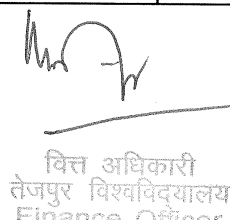 वित्त अधिकारी
तेजपुर विश्वविद्यालय
Finance Officer